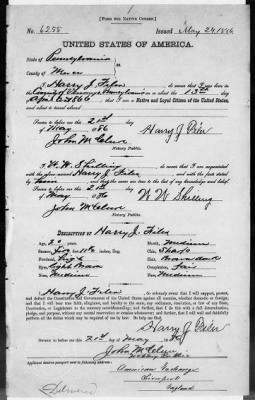 [FORM FOR NATIVE CITIZEN.]
No. 6258 Issued May 24, 1886
UNITED STATES OF AMERICA.
State of Pennsylvania
County of Mercer
I, Harry J. Filer, do swear that I was born in
County of Pennsylvania on or about the 13th day
of April 1866, that I am a Native and Loyal Citizen of the United States,
and about to travel abroad.
Sworn to before me this 21st
of May 1886 Harry J Filer
John McClure
Notary Public.
I, W. W. Shilling, do swear that I am acquainted
with the above named Harry J. Filer, and with the facts stated
by him, and that the same are true to the best of my knowledge and belief.
Sworn to before me this 21st
of May 1886 W W Shilling
John McClure
Notary Public.
DESCRIPTION OF Harry J. Filer
Age, 20 years. Mouth, Medium
Stature, Eng. Chin,
Forehead, High Hair,
Eyes, Light Brown Complexion, Fair
Nose, Medium Face, Medium
I, Harry J. Filer, do solemnly swear that I will support, protect,
and defend the Constitution and Government of the United States against all enemies, whether domestic or foreign;
and that I will bear true faith, allegiance, and loyalty to the same, any ordinance, resolution, or law of any State,
Convention, or Legislature to the contrary notwithstanding; and further, that I do this with a full determination,
pledge, and purpose, without any mental reservation or evasion whatsoever; and further, that I will well and faithfully
perform all the duties which may be required of me by law: So help me God.
Harry J Filer
Sworn to before me this 21st May 1886
John McClure
Notary Public
Applicant desires passport sent to following address:
American Exchange
Liverpool
England